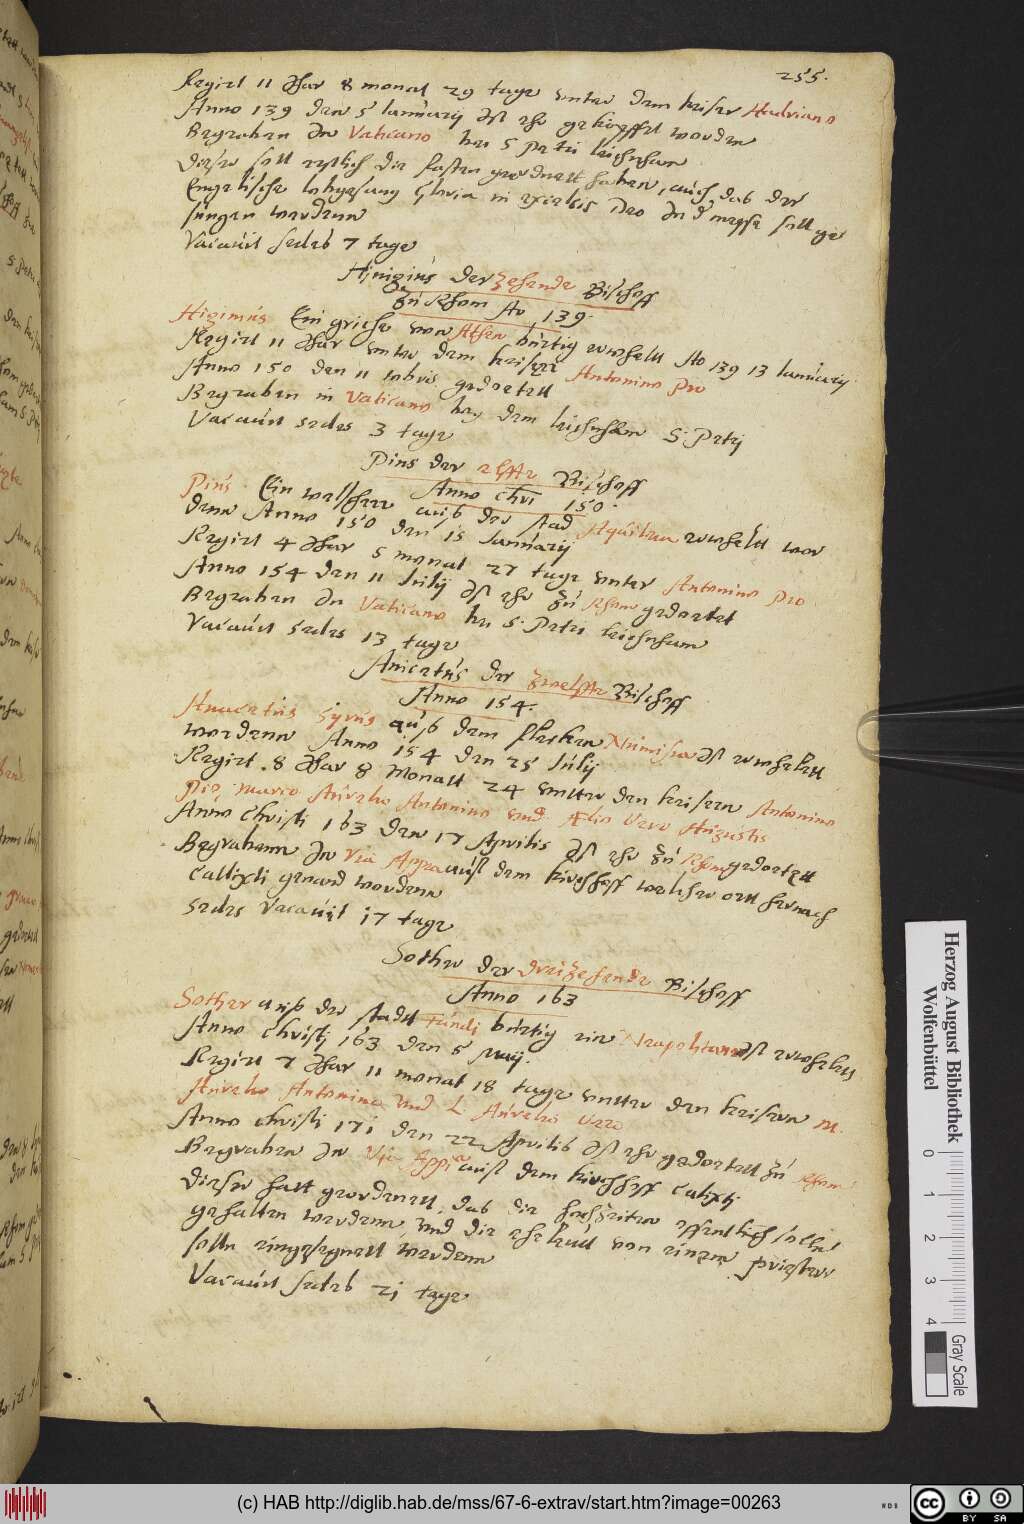 255.
Regirt 11 Jhar 8 monat 29 tage vnter dem keiser Hadriano
Anno 139 den 5 Januarij Ist ehr gekoepffet worden
Begraben In Vaticano bei S Petri leichnham
Dieser soll erstlich die fasten geordnett haben, auch das der
Engelische lobgesang Gloria in excelsis Deo In d messe soll ge
sungen werdenn
Vacauit sedes 7 tage
Higinius der zehende Bischoff
zu Rhom Ao 139.
Higinius Ein grieche von Athen burtig erwhelt Ao 139 13 Januarij
Regirt 11 Jhar vnter dem keiser Antonino Pio
Anno 150 den 11 gedoetett
Begraben in Vaticano bey dem leichnham S: Petrj
Vacauit sedes 3 tage
Pius der elffte Bischoff
Anno chri 150.
Pius Ein welscher auß der stad Aquileia erwhelt wor
denn Anno 150 den 15 Januarij
Regirt 4 Jhar 5 monat 27 tage vnter Antonino Pio
Anno 154 den 11 Julij Ist ehr zu Rhom gedoetet
Begraben In Vaticano bei S. Petri leichnham
Vacauit sedes 13 tage
Anicetus der zwelffte Bischoff
Anno 154.
Anicetus Syrus auß dem flecken Numisia Ist erwhelett
wordenn Anno 154 den 25 Julij
Regirt 8 Jhar 8 Monatt 24 vntter den keisern Antonino
Pio, Marco Aurelio Antonino vnd Ælio Vero Augustis
Anno Christi 163 den 17 Aprilis Ist ehr zu Rhom gedoetett
Begrabenn In Via Appia auff dem kirchhoff welcher ortt hernach
Callixti genand wordenn
Sedes Vacauit 17 tage
Sother der dreizehende Bischoff
Anno 163
Sother auß der stadtt Fundj burtig ein Neapolitaner Ist erwhelett
Anno Christj 163 den 5 Maij.
Regirt 7 Jhar 11 monat 18 tage vntter den keisern M.
Aurelio Antonino vnd L Aurelio Vero
Anno christi 171 den 22 Aprilis Ist ehr gedoetett zu Rhom
Begraben In Via Appia auff dem kirchhoff Calixtj
Dieser hatt geordenett, das die hochzeiten offentlich sollen
gehalten werdenn, vnd die eheleutt von einem priester
solln eingesegnett werdenn
Vacauit sedes 21 tage
Herzog August Bibliothek
Wolfenbüttel
0 1 2 3 4
Gray Scale
(c) HAB http://diglib.hab.de/mss/67-6-extrav/start.htm?image=00263
WDB
cc BY SA